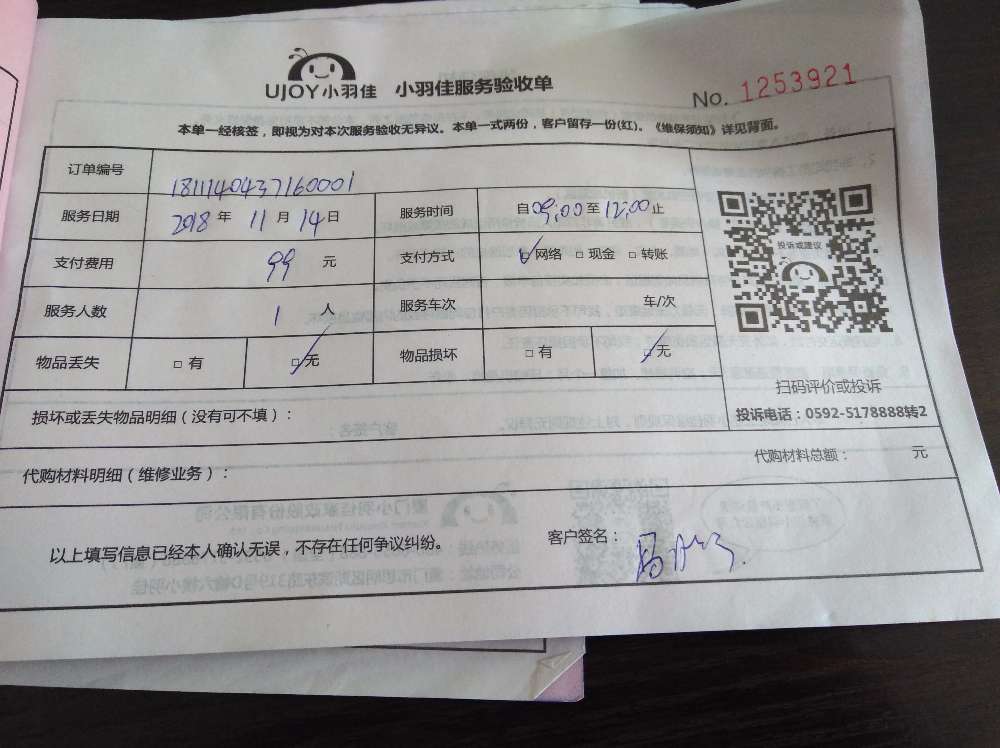 UJOY小羽佳 小羽佳服务验收单
No. 1253921
本单一经核签，即视为对本次服务验收无异议。本单一式两份，客户留存一份(红)。《维保须知》详见背面。
订单编号 1811140437160001
服务日期 2018 年 11 月 14 日 服务时间 自09:00至12:00止
投诉或建议
支付费用 99 元 支付方式 ☑网络 □现金 □转账
服务人数 1 人 服务车次 车/次
物品丢失 □有 ☑无 物品损坏 □有 ☑无
扫码评价或投诉
投诉电话：0592-5178888转2
损坏或丢失物品明细（没有可不填）：
代购材料明细（维修业务）： 代购材料总额： 元
以上填写信息已经本人确认无误，不存在任何争议纠纷。 客户签名：